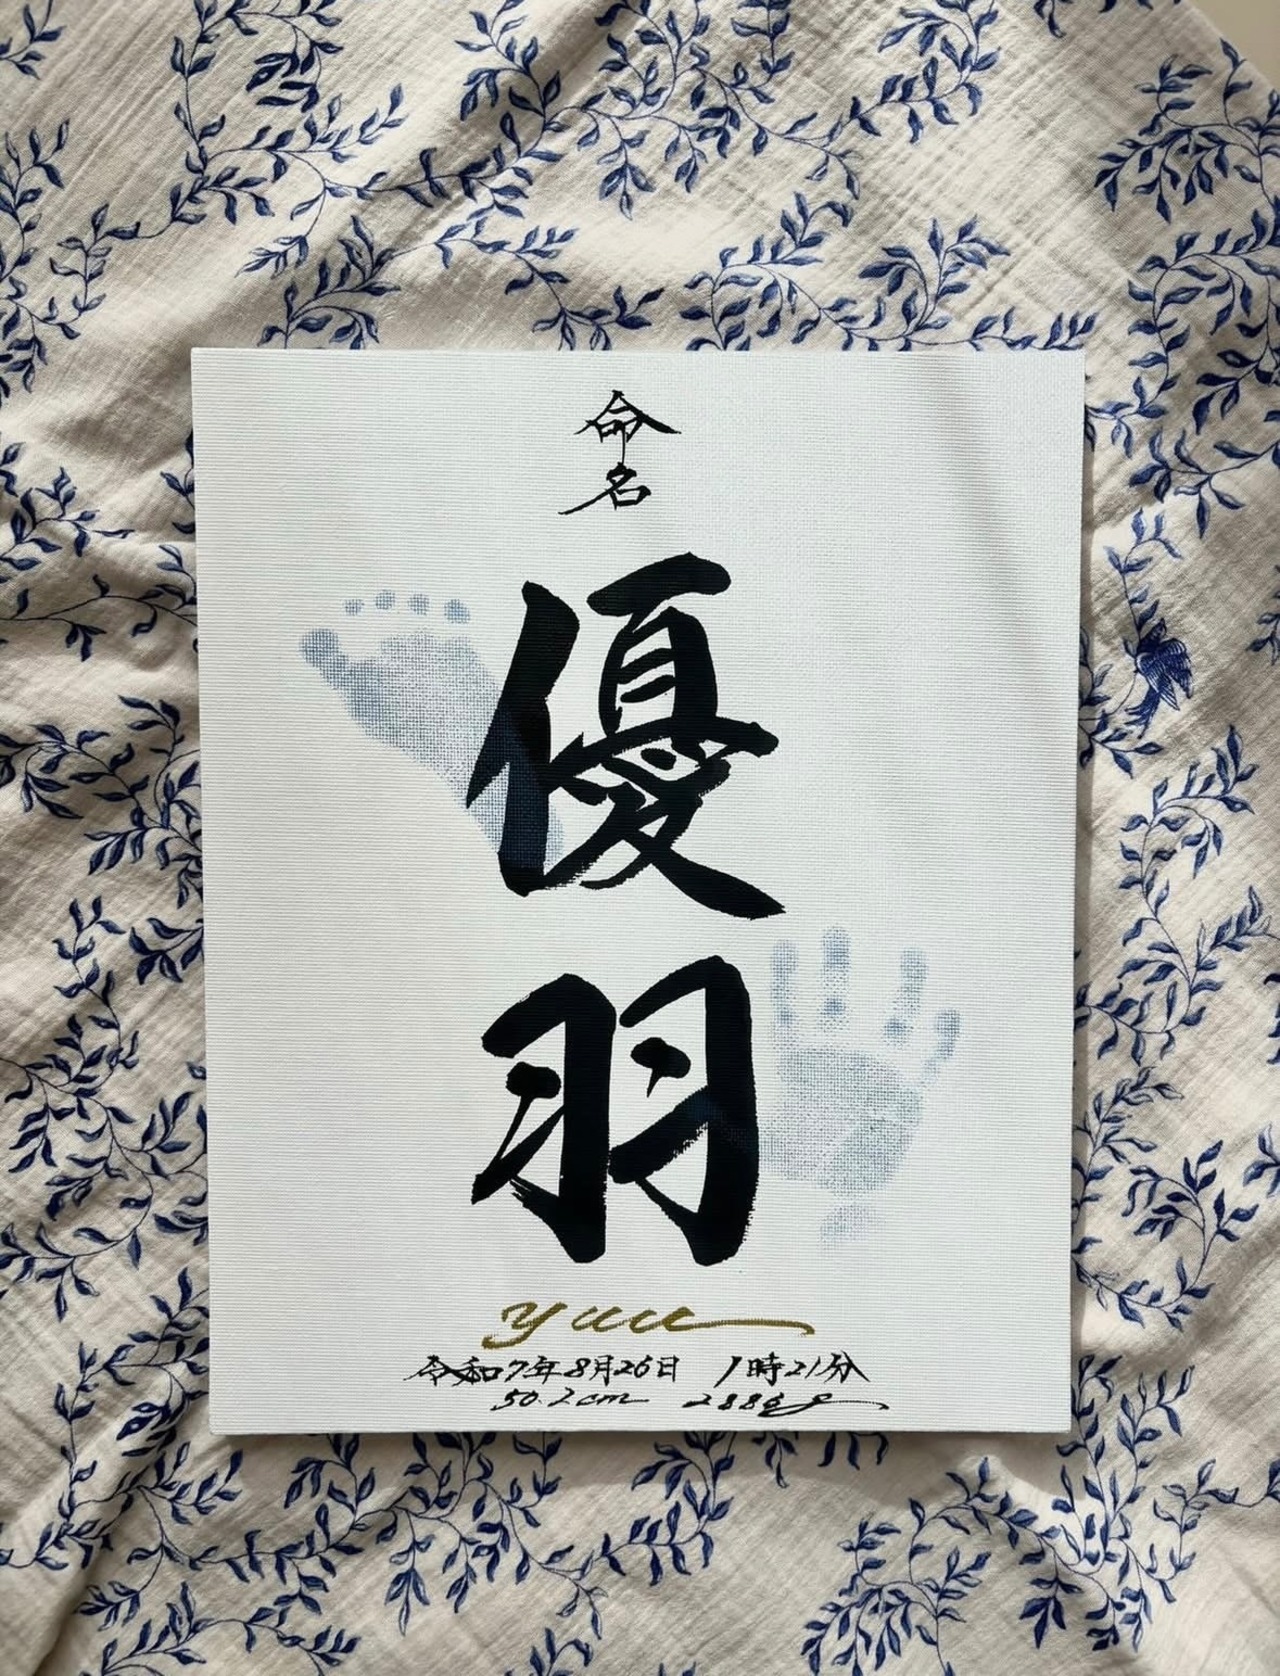 命名
優羽
yuu
令和7年8月26日 1時21分
50.2cm 2886g